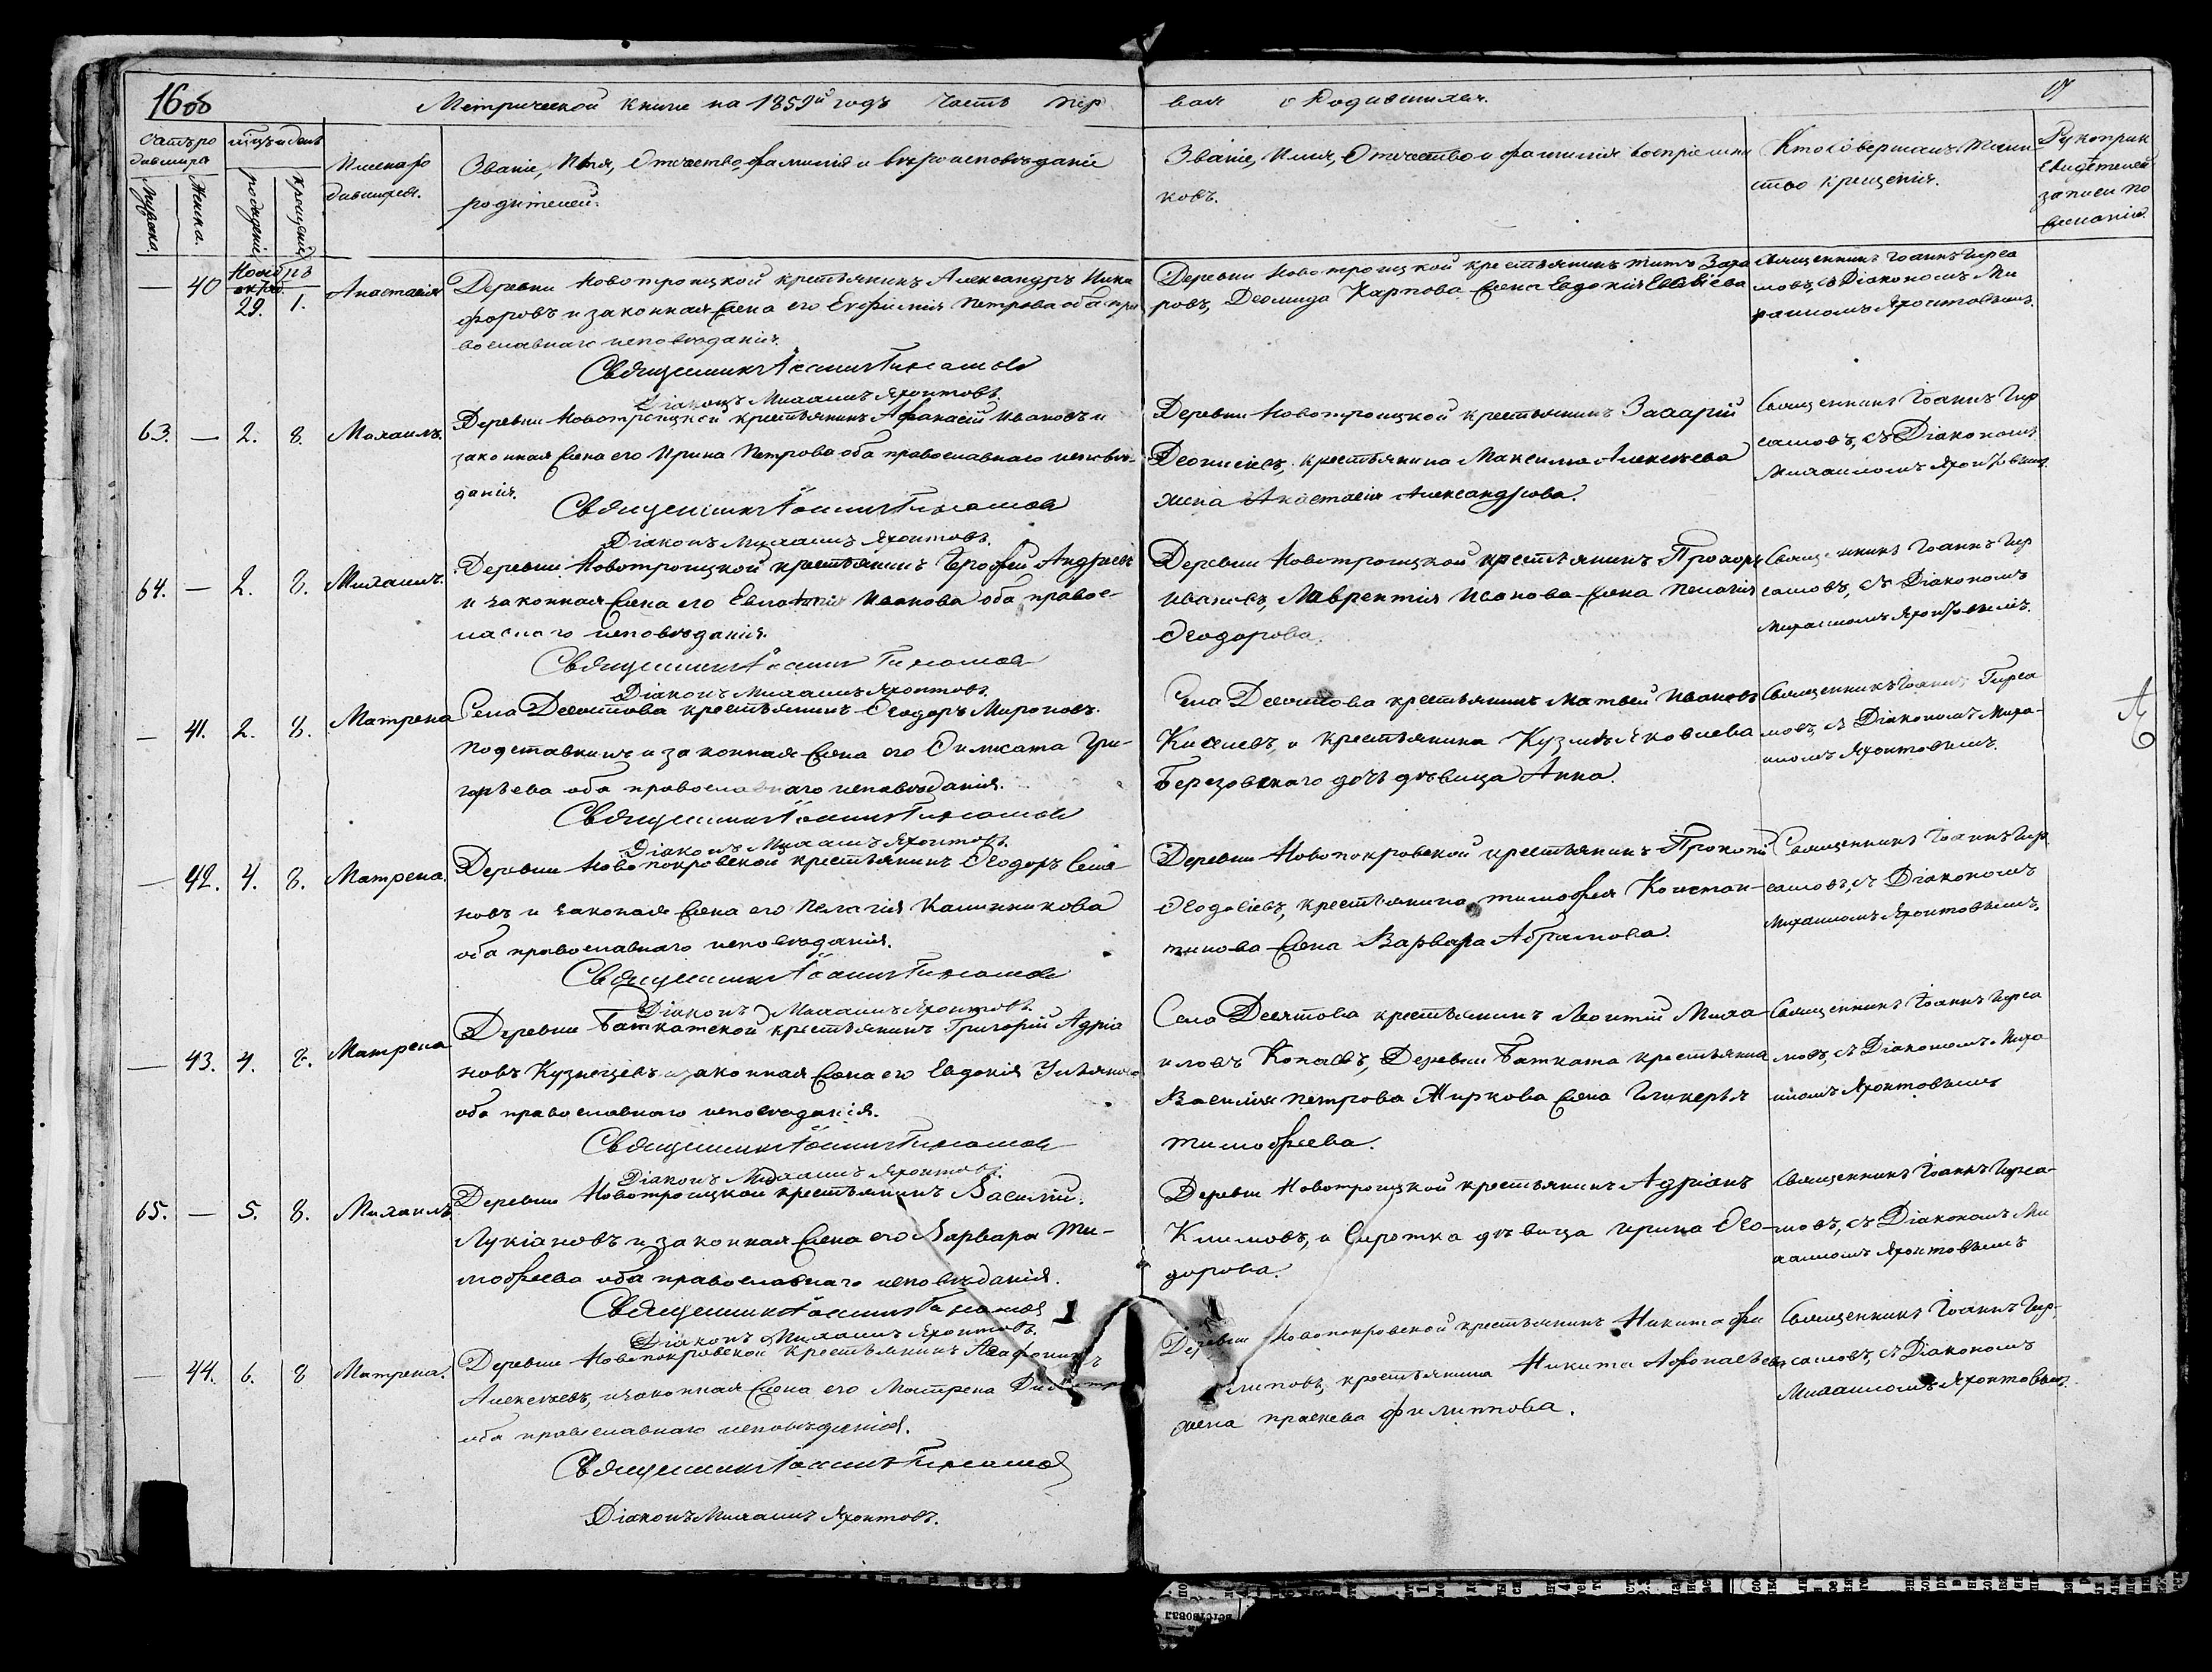 16 об
Метрической книги на 1852й годъ Часть пер
вая о Родившихся.
Званіе, Имя, Отчество, фамилія и вѣроисповѣданіе
родителей.
Званіе, Имя, Отчество и фамилія воспріемни
ковъ.
Кто совершалъ таин
ство крещенія.
Рукоприк
записи по
Имена ро
дившихся.
Мужска.
Женска.
рожденія
крещенія
— 40 29. 1. Анастасія
Деревни Новотроицкой крестьянинъ Александръ Ники
форовъ и законная жена его Евфимія Петрова оба пра
вославнаго исповѣданія.
Священникъ Іоаннъ Гирсамовъ
Діаконъ Михаилъ Яхонтовъ.
Деревни Новотроицкой крестьянинъ Титъ Заха
ровъ, Деомида Карпова жена Евдокія
Священникъ Іоаннъ Гирса
мовъ, съ Діакономъ Ми
хаиломъ Яхонтовымъ.
63. — 2. 8. Михаилъ.
Деревни Новотроицкой крестьянинъ Афанасій Ивановъ и
законная жена его Ирина Петрова оба православнаго исповѣ-
данія.
Священникъ Іоаннъ Гирсамовъ
Діаконъ Михаилъ Яхонтовъ.
Деревни Новотроицкой крестьянинъ Захарій
крестьянина Максима Алексѣева
жена Анастасія Александрова.
Священникъ Іоаннъ Гир
самовъ, съ Діакономъ
Михаиломъ Яхонтовымъ.
64. — 2. 8. Михаилъ.
Деревни Новотроицкой крестьянинъ Ерофей Андреевъ
и законная жена его Евлампія Иванова оба правос-
лавнаго исповѣданія.
Священникъ Іоаннъ Гирсамовъ
Діаконъ Михаилъ Яхонтовъ.
Деревни Новотроицкой крестьянинъ Прохоръ
Ивановъ, Лаврентія Иванова жена Пелагія
Ѳеодорова.
Священникъ Іоаннъ Гир
самовъ, съ Діакономъ
Михаиломъ Яхонтовымъ.
— 41. 2. 8. Матрена
Села Десятова крестьянинъ Ѳеодоръ Мироновъ
и законная жена его Гри-
горьева оба православнаго исповѣданія.
Священникъ Іоаннъ Гирсамовъ
Діаконъ Михаилъ Яхонтовъ.
Села Десятова крестьянинъ Матвей Ивановъ
Киселевъ, и крестьянина Кузмы Яковлева
Березовскаго дочь дѣвица Анна.
Священникъ Іоаннъ Гирса
мовъ, съ Діакономъ Миха-
иломъ Яхонтовымъ.
— 42. 4. 8. Матрена.
Деревни Новопокровской крестьянинъ Ѳеодоръ
новъ и законная жена его Пелагія Калинникова
оба православнаго исповѣданія.
Священникъ Іоаннъ Гирсамовъ
Діаконъ Михаилъ Яхонтовъ.
Деревни Новопокровской крестьянинъ Прокопій
крестьянина Тимофея Констан-
тинова жена Варвара Абрамова.
Священникъ Іоаннъ Гир
самовъ, съ Діакономъ
Михаиломъ Яхонтовымъ.
— 43. 4. 8. Матрена
Деревни Баткатской крестьянинъ Григорій Адріа
новъ Кузнецевъ и законная жена его Евдокія Ульянова
оба православнаго исповѣданія.
Священникъ Іоаннъ Гирсамовъ
Діаконъ Михаилъ Яхонтовъ.
Села Десятова крестьянинъ Леонтій Миха
иловъ Копаевъ, Деревни Батката крестьянина
Василія Петрова Жиркова жена Гликерья
Тимофеева.
Священникъ Іоаннъ Гирса
мовъ, съ Діакономъ Миха
иломъ Яхонтовымъ
65. — 5. 8. Михаилъ
Деревни Новотроицкой крестьянинъ Василій
Лукіановъ и законная жена его Варвара Ти-
мофеева оба православнаго исповѣданія.
Священникъ Іоаннъ Гирсамовъ
Діаконъ Михаилъ Яхонтовъ.
Деревни Новотроицкой крестьянинъ Адріанъ
Климовъ, и Сиротка дѣвица Ирина Ѳео-
дорова.
Священникъ Іоаннъ Гирса-
мовъ, съ Діакономъ Ми
хаиломъ Яхонтовымъ
— 44. 6. 8 Матрена.
Деревни Новопокровской крестьянинъ Агафоникъ
Алексѣевъ, и законная жена его Матрена
оба православнаго исповѣданія.
Священникъ Іоаннъ Гирсамовъ
Діаконъ Михаилъ Яхонтовъ.
Деревни Новопокровской крестьянинъ Никита Фи
липовъ, крестьянина Никита
жена Праскева Филиппова.
Священникъ Іоаннъ Гир-
самовъ, съ Діакономъ
Михаиломъ Яхонтовымъ.